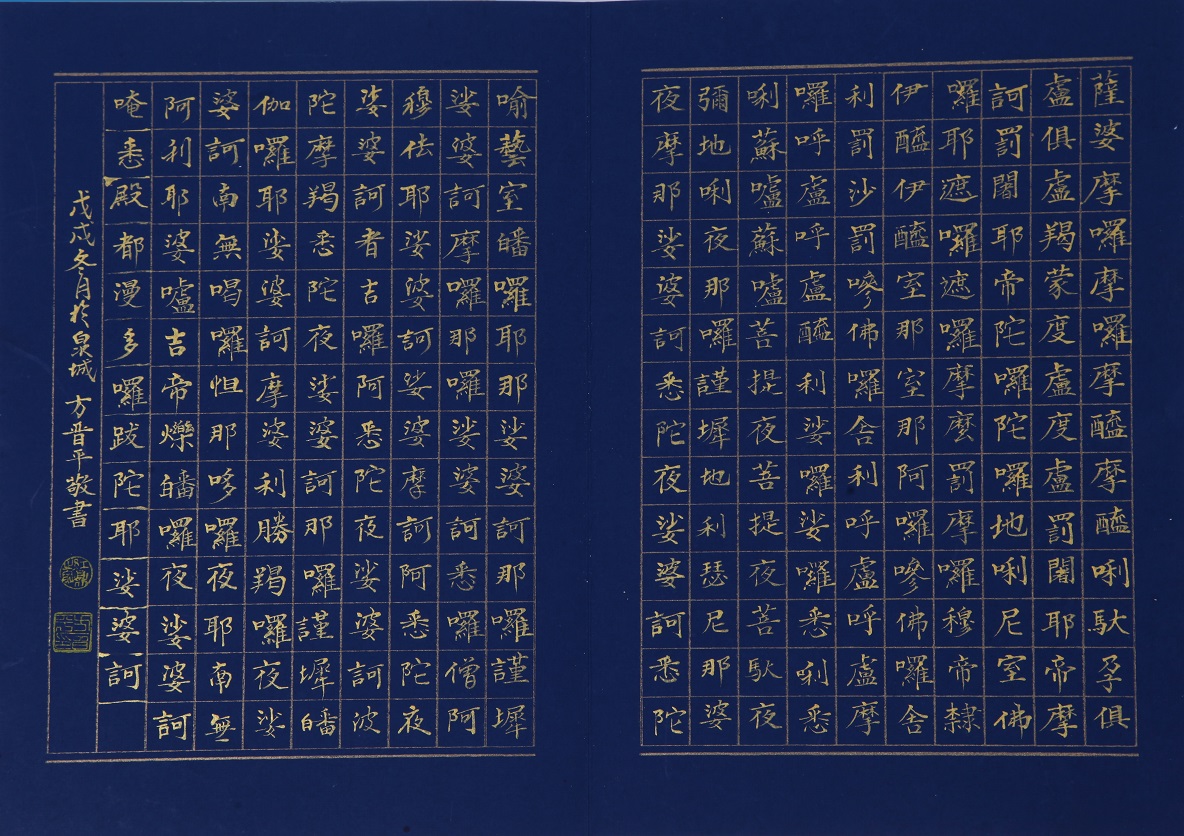 薩婆摩囉摩囉摩醯摩醯唎馱孕俱
盧俱盧羯蒙度盧度盧罰闍耶帝摩
訶罰闍耶帝陀囉陀囉地唎尼室佛
囉耶遮囉遮囉摩麼罰摩囉穆帝隸
伊醯伊醯室那室那阿囉嘇佛囉舍
利罰沙罰嘇佛囉舍利呼盧呼盧摩
囉呼盧呼盧醯利娑囉娑囉悉唎悉
唎蘇嚧蘇嚧菩提夜菩提夜菩馱夜
彌地唎夜那囉謹墀地利瑟尼那婆
夜摩那娑婆訶悉陀夜娑婆訶悉陀
喻藝室皤囉耶那娑婆訶那囉謹墀
娑婆訶摩囉那囉娑婆訶悉囉僧阿
穆佉耶娑婆訶娑婆摩訶阿悉陀夜
娑婆訶者吉囉阿悉陀夜娑婆訶波
陀摩羯悉陀夜娑婆訶那囉謹墀皤
伽囉耶娑婆訶摩婆利勝羯囉夜娑
婆訶南無喝囉怛那哆囉夜耶南無
阿利耶婆嚧吉帝爍皤囉夜娑婆訶
唵悉殿都漫多囉跋陀耶娑婆訶
戊戌冬月於泉城方晋平敬書